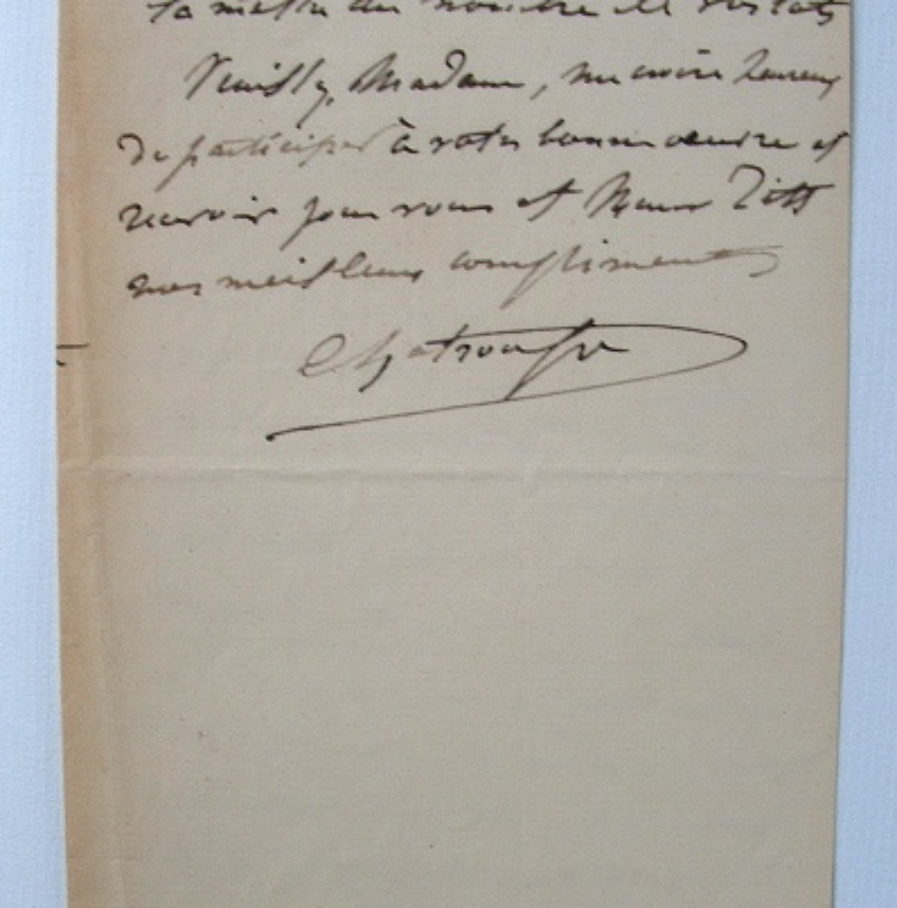 Veuillez, Madame, me croire heureux
de participer à votre bonne oeuvre et
recevoir pour vous et
mes meilleurs compliments
Chatrousse